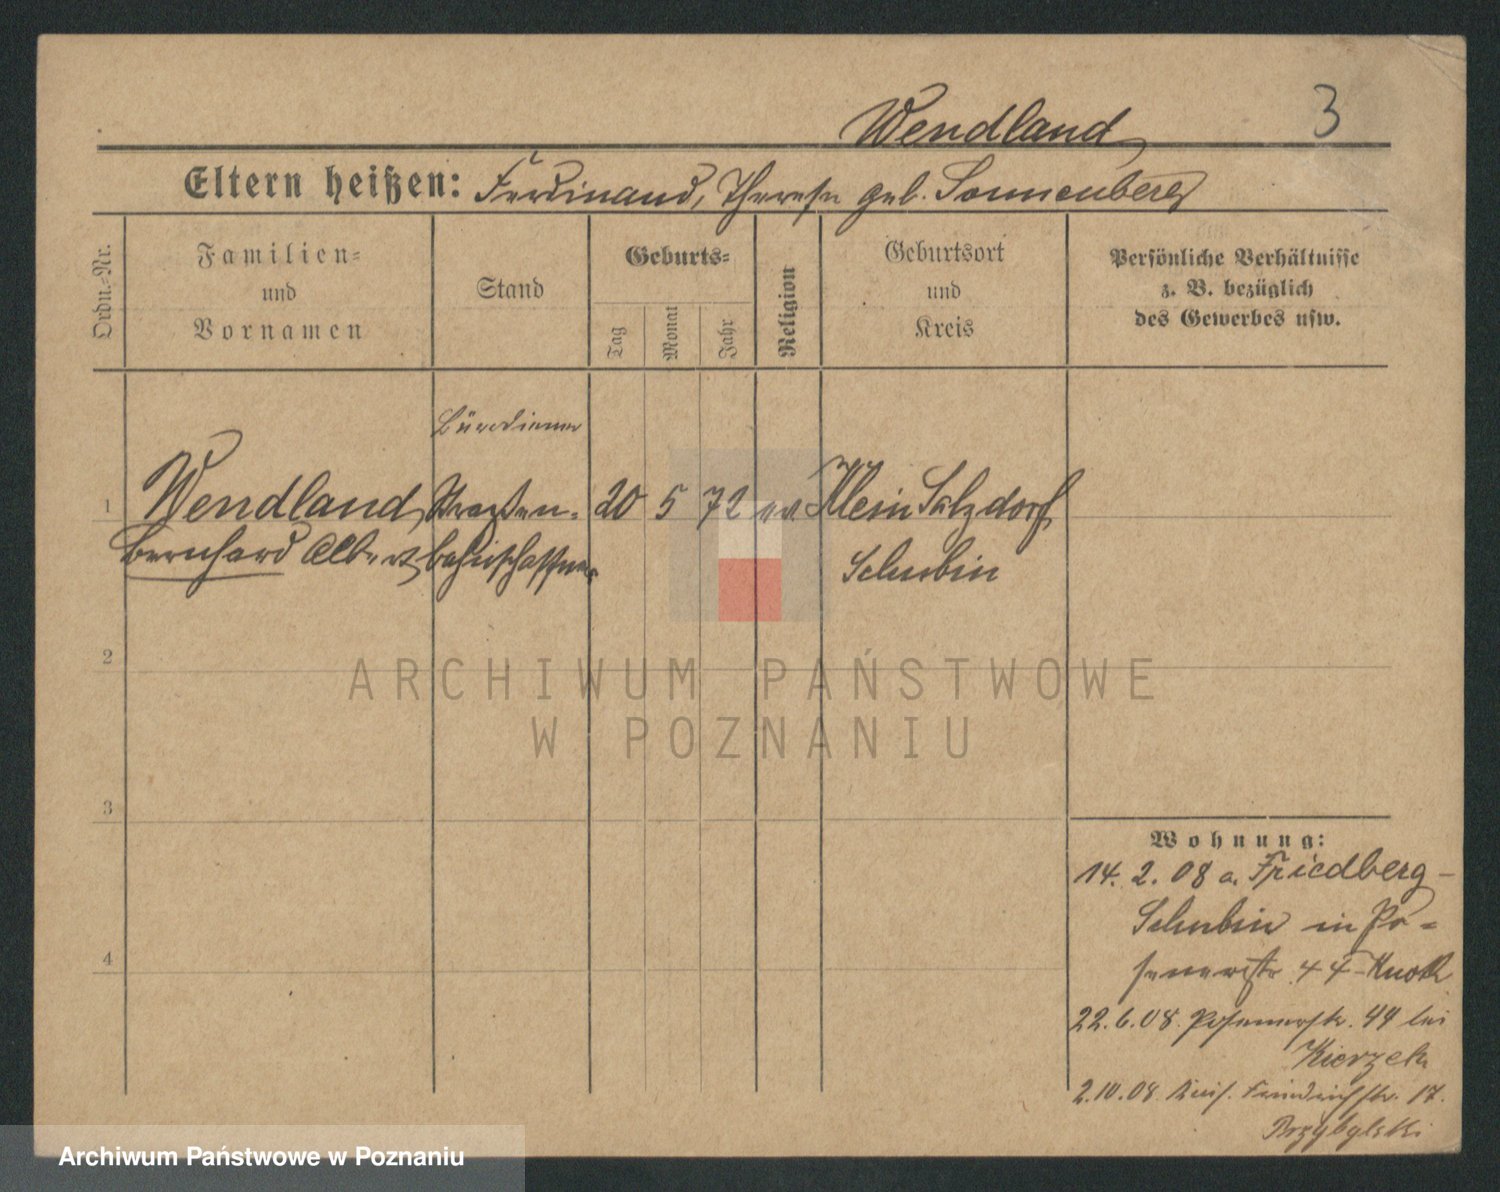 Wendland
3
Eltern heißen: Ferdinand, Therese geb. Sonnenberg
Ordn.-Nr.
Familien-
und
Vornamen
Stand
Geburts-
Tag
Monat
Jahr
Religion
Geburtsort
und
Kreis
Persönliche Verhältnisse
z. B. bezüglich
des Gewerbes usw.
Bürodiener
1 Wendland Straßen- 20 5 72 ev. Klein Salzdorf
Bernhard Albert bahnschaffner Schubin
2
ARCHIWUM PAŃSTWOWE
W POZNANIU
3
Wohnung:
14. 2. 08 a. Friedberg-
Schubin in Po-
senerstr. 44 - Knoth
4
22.6.08. Posenerstr. 44 bei
Kierzek
2.10.08. Friedrichstr. 17.
Przybylski
Archiwum Państwowe w Poznaniu